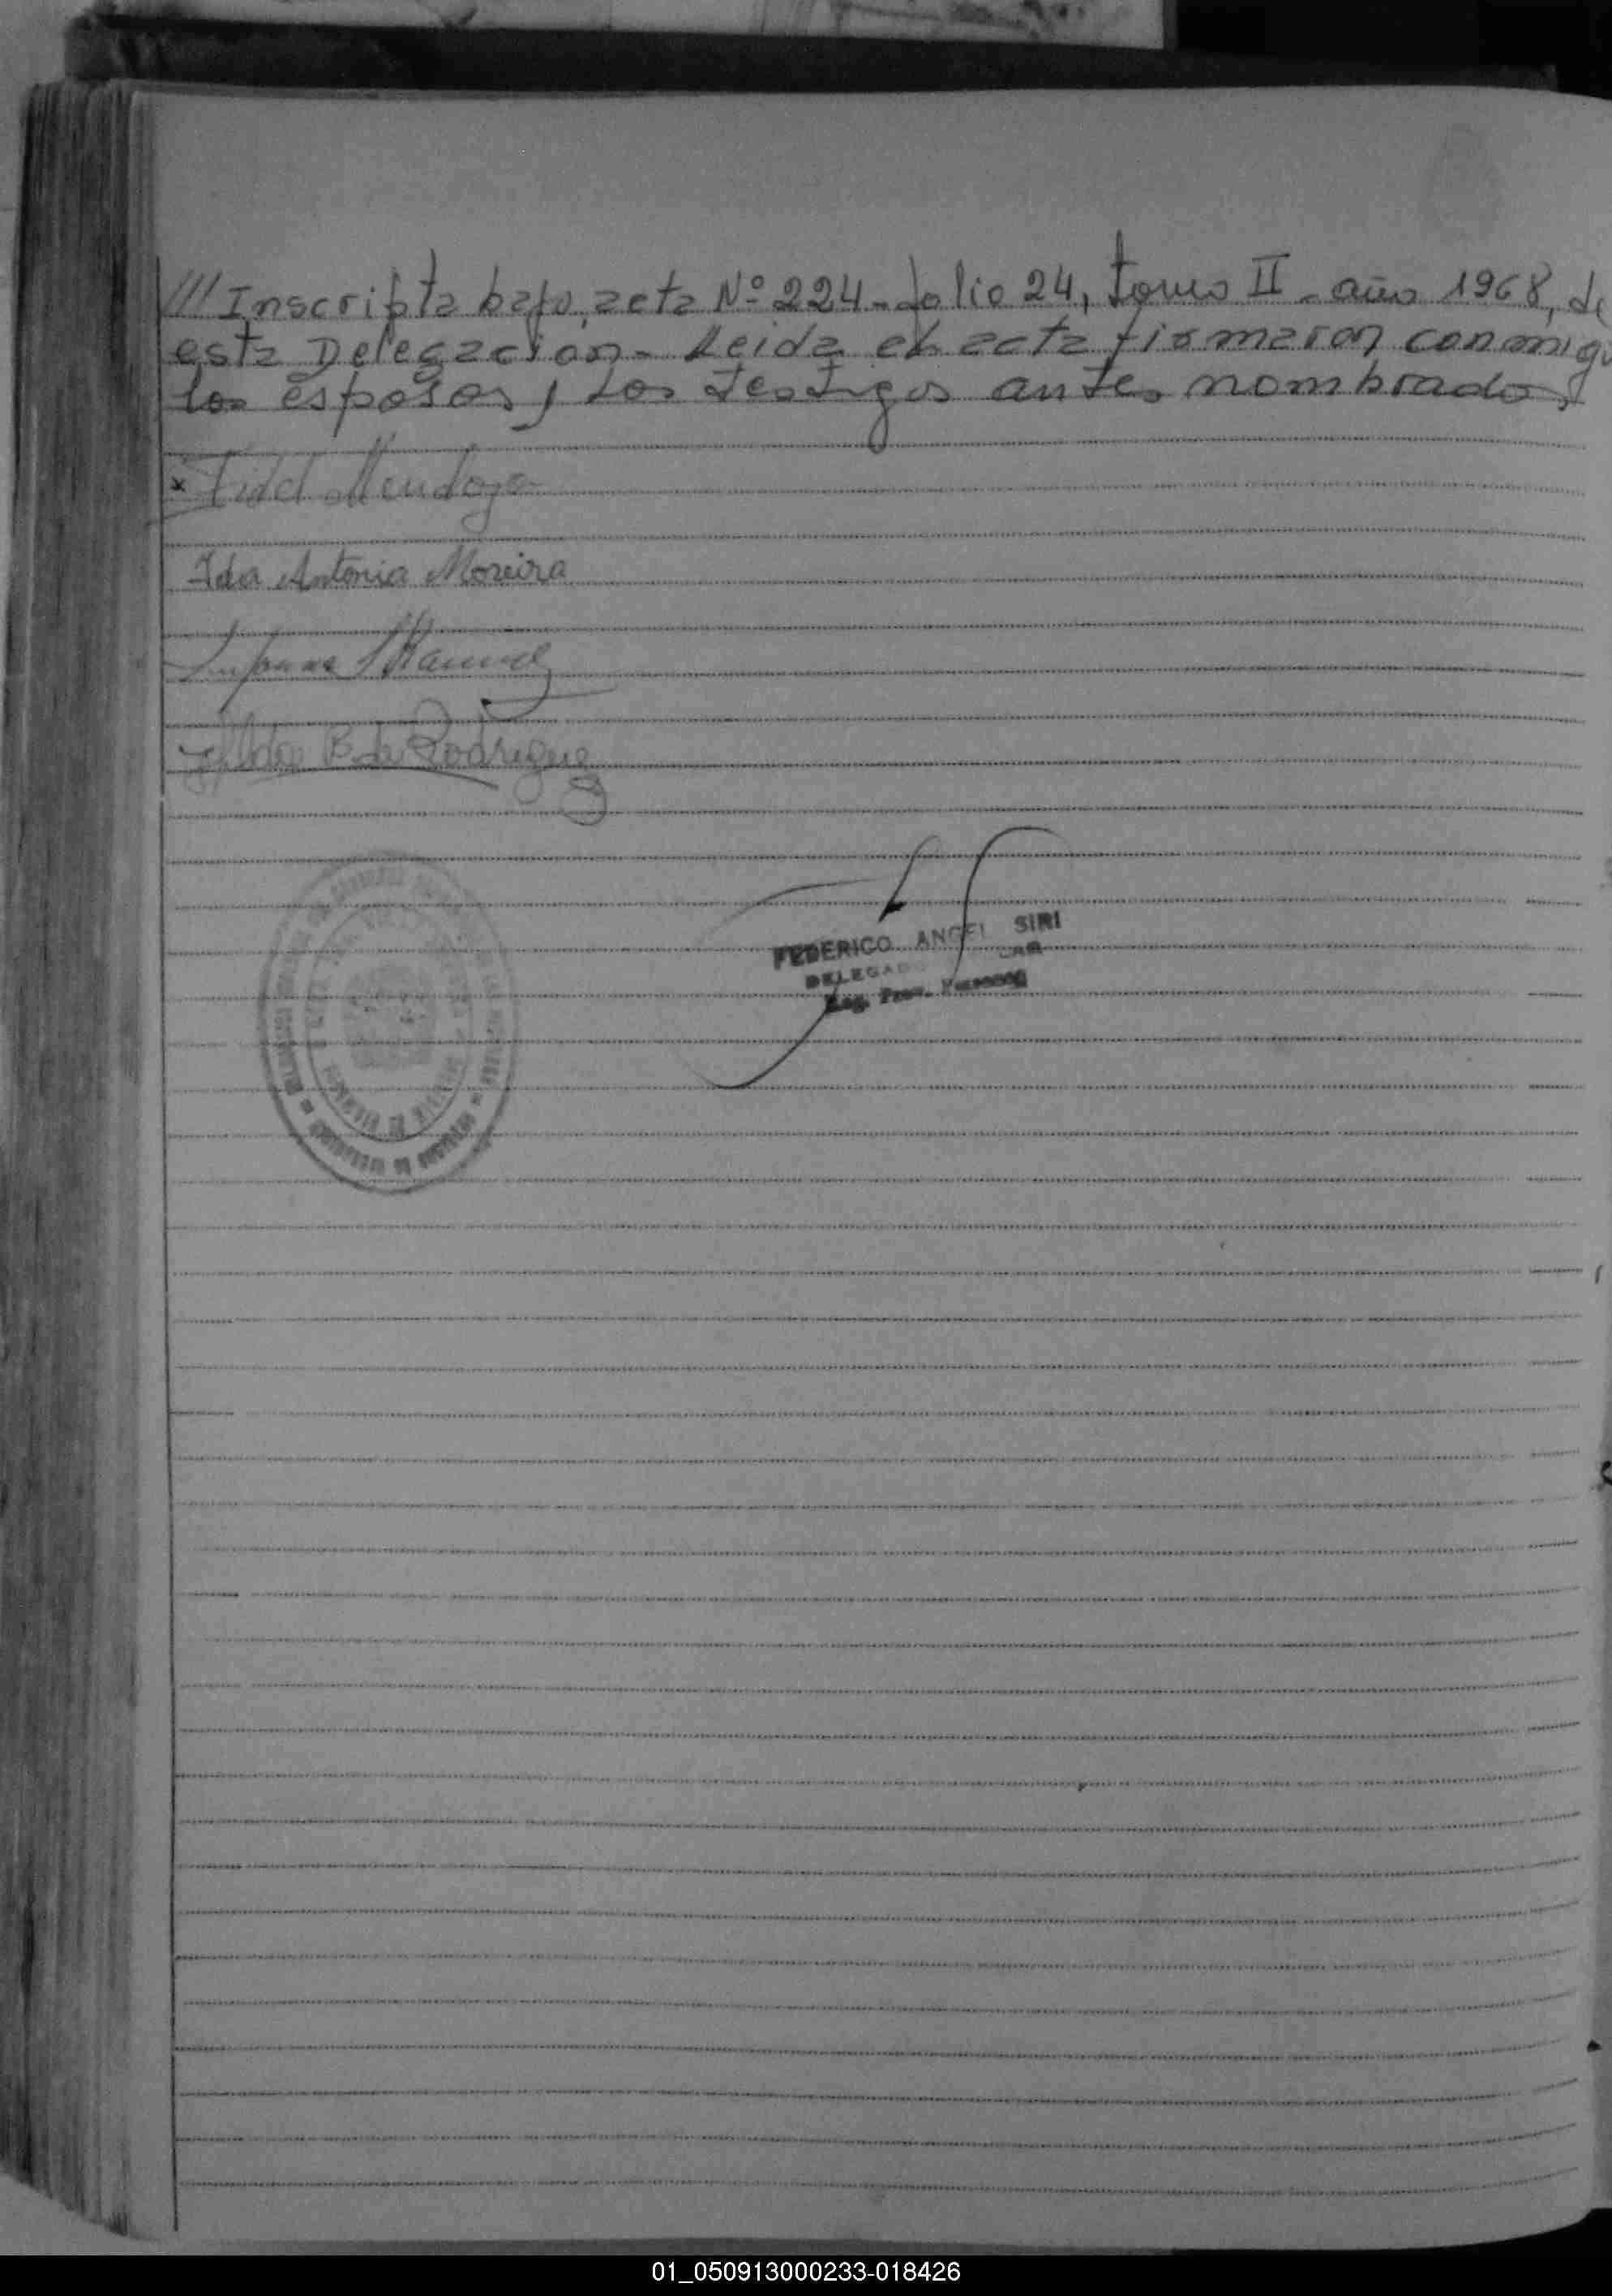 /// Inscripta bajo, acta Nº 224 - folio 24, tomo II - año 1968, de
esta Delegación - Leida el acta firmaron conmigo
los esposos y los testigos antes nombrados
x Fidel Mendoza
Ida Antonia Moreira
Manuel
B. de Rodriguez
FEDERICO ANGEL SIRI
DELEGADO
Reg. Prov. Personas
01_050913000233-018426